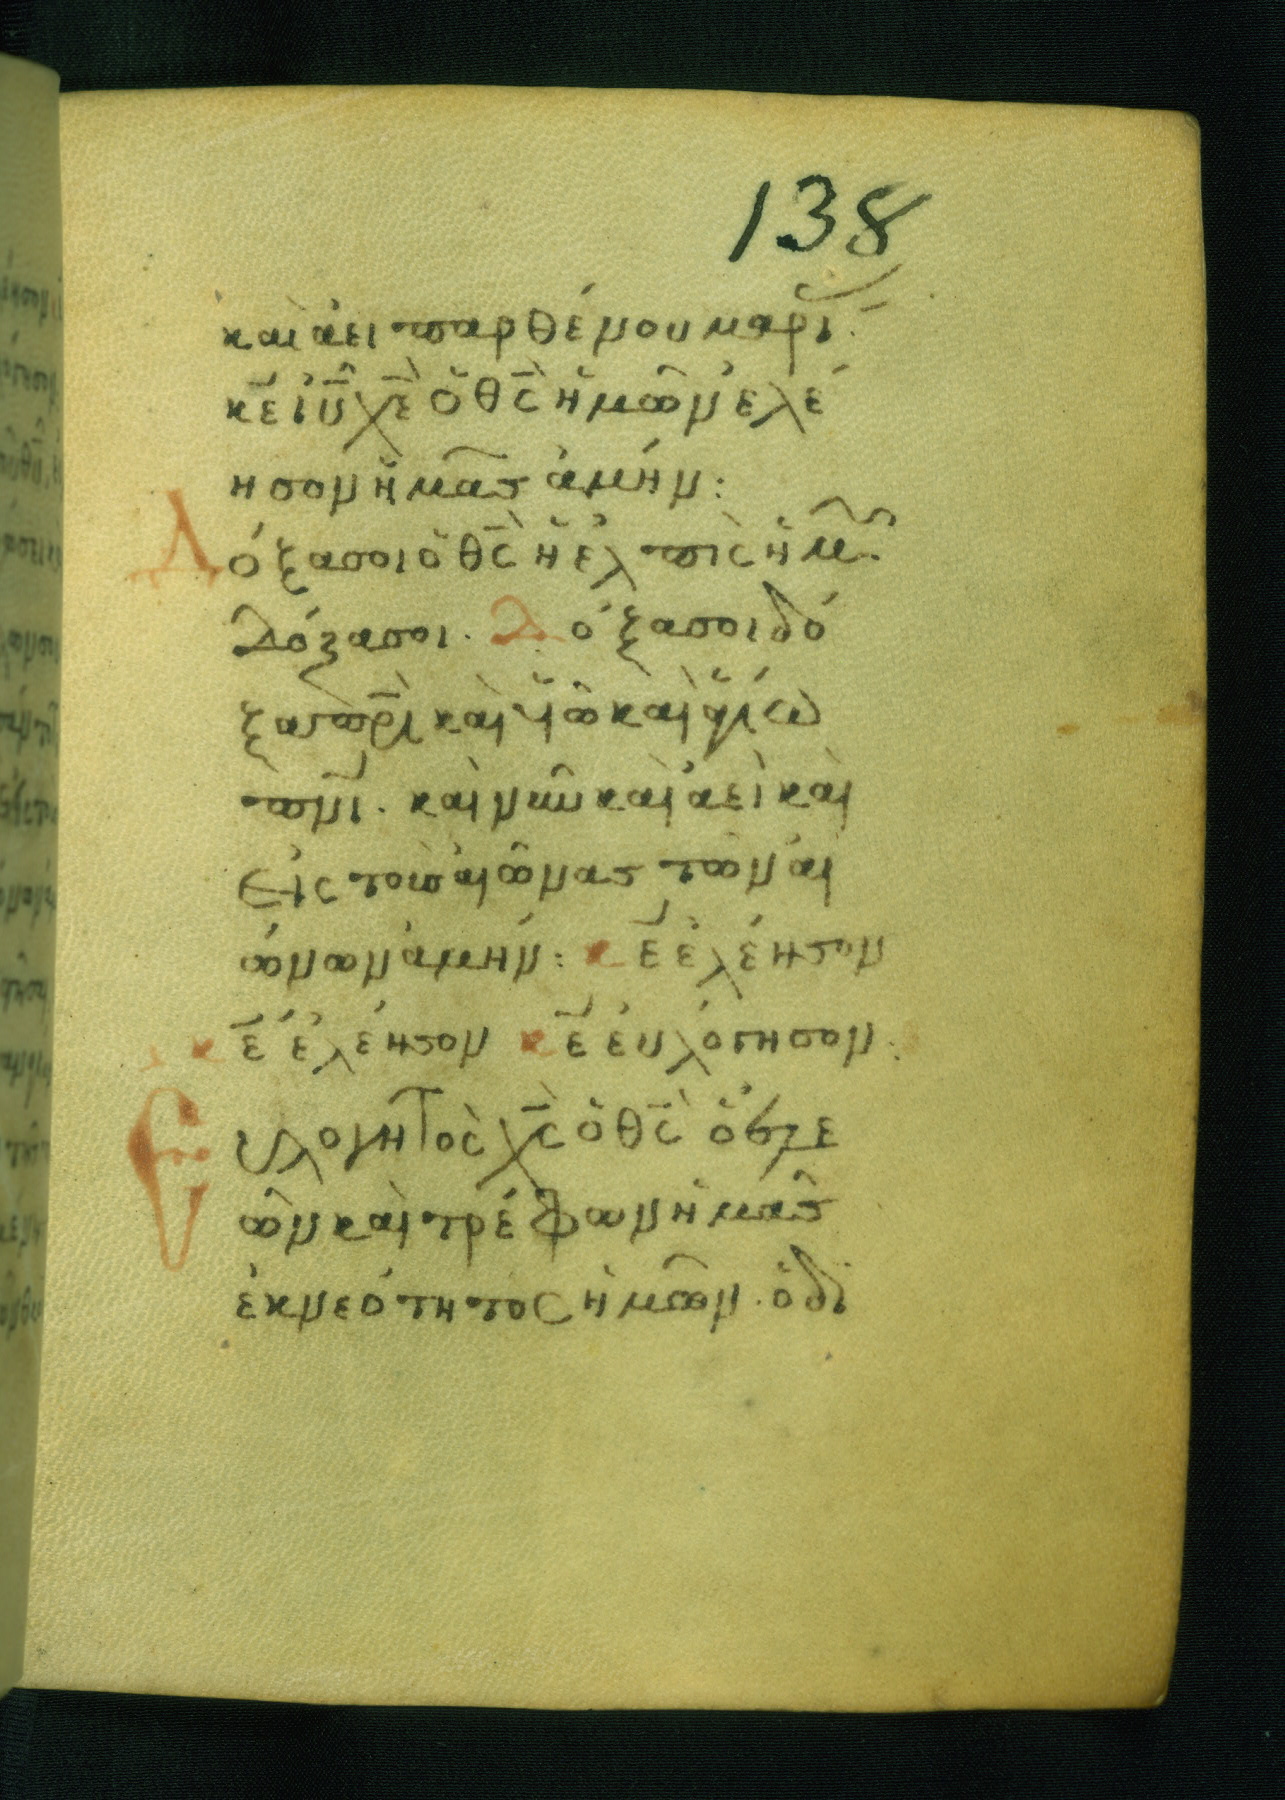 138
καὶ ἀειπαρθένου μαρί
κ̅ε ι̅υ̅ χ̅ε ὁ θ̅ς ἡμῶν ἐλέ
ησον ἡμᾶς ἀμήν:
Δόξα σοι ὁ θ̅ς ἡ ἐλπὶς ἡμ
δόξα σοι. Δόξα σοι δό
ξα π̅ρ̅ι καὶ υ̅ἱῶ καὶ ἁγίω
π̅ν̅ι. καὶ νῦν καὶ ἀεὶ καὶ
εἰς τοὺς αἰῶνας τῶν αἰ
ώνων ἀμήν: κ̅ε ἐλέησον
κ̅ε ἐλέησον κ̅ε ἐυλόγησον:
Ευλογητὸς χ̅ς ὁ θ̅ς ὁ ἐλε
ῶν καὶ τρέφων ἡμᾶς
ἐκ νεότητος ἡμῶν. ὁ δι